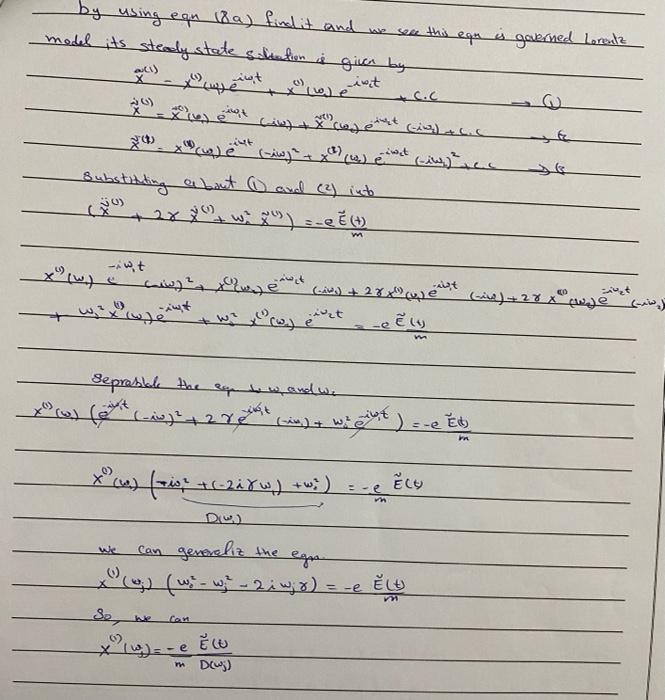 by using eqn (8a) find it and we see this eqn is governed Lorentz
model its steady state solution is given by
x̃⁽¹⁾ = x⁽¹⁾(ω₁) e^{-iω₁t} + x⁽¹⁾(ω₂) e^{-iω₂t} + c.c → ①
ẋ̃⁽¹⁾ = x⁽¹⁾(ω₁) e^{-iω₁t} (-iω₁) + x⁽¹⁾(ω₂) e^{-iω₂t} (-iω₂) + c.c →
ẍ̃⁽¹⁾ = x⁽¹⁾(ω₁) e^{-iω₁t} (-iω₁)² + x⁽¹⁾(ω₂) e^{-iω₂t} (-iω₂)² + c.c →
Substituting ① and (2) into
(ẍ̃⁽¹⁾ + 2γ ẋ̃⁽¹⁾ + ω₀² x̃⁽¹⁾) = -e Ẽ(t)/m
x⁽¹⁾(ω₁) e^{-iω₁t} (-iω₁)² + x⁽¹⁾(ω₂) e^{-iω₂t} (-iω₂) + 2γ x⁽¹⁾(ω₁) e^{-iω₁t} (-iω₁) + 2γ x⁽¹⁾(ω₂) e^{-iω₂t} (-iω₂)
+ ω₀² x⁽¹⁾(ω₁) e^{-iω₁t} + ω₀² x⁽¹⁾(ω₂) e^{-iω₂t} = -e Ẽ(t)/m
the eqn ω₁ and ω₂
x⁽¹⁾(ω₁) (e^{-iω₁t} (-iω₁)² + 2γ e^{-iω₁t} (-iω₁) + ω₀² e^{-iω₁t}) = -e Ẽ(t)/m
x⁽¹⁾(ω₁) (-ω₁² + (-2iγω₁) + ω₀²) = -e/m Ẽ(t)
D(ω₁)
we can generaliz the eqn
x⁽¹⁾(ωⱼ) (ω₀² - ωⱼ² - 2iωⱼγ) = -e Ẽ(t)/m
So, we can
x⁽¹⁾(ωⱼ) = -e/m Ẽ(t)/D(ωⱼ)